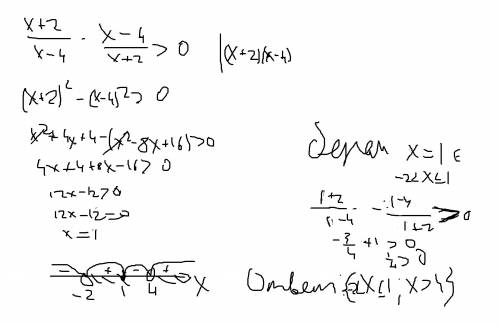 (x+2)/(x-4) - (x-4)/(x+2) > 0 |(x+2)(x-4)
(x+2)² - (x-4)² > 0
x² + 4x + 4 - (x² - 8x + 16) > 0
4x + 4 + 8x - 16 > 0
12x - 12 > 0
12x - 12 = 0
x = 1
- + - + x
-2 1 4
Берем x = 1 ∈
-2 < x ≤ 1
(1+2)/(1-4) - (1-4)/(1+2) > 0
-3/4 + 1 > 0
1/4 > 0
Ответ: {-2<x≤1; x>4}